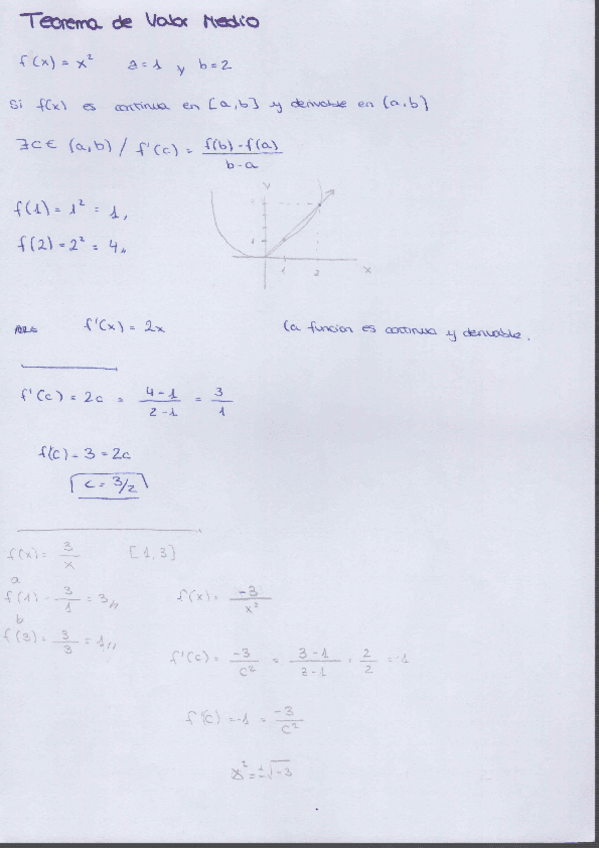 Teorema de Valor Medio
f(x) = x² a=1 y b=2
Si f(x) es continua en [a,b] y derivable en (a,b)
∃c∈ (a,b) / f'(c) = f(b)-f(a) / b-a
f(1) = 1² = 1,,
f(2) = 2² = 4,,
y
1
1 2 x
f'(x) = 2x La funcion es continua y derivable.
f'(c) = 2c = 4-1 / 2-1 = 3 / 1
f(c) - 3 = 2c
c = 3/2
f(x) = 3 / x [1,3]
a
f(1) = 3 / 1 = 3,, f(x) = -3 / x²
b
f(3) = 3 / 3 = 1,,
f'(c) = -3 / c² = 3-1 / 3-1 = 2 / 2 = -1
f'(c) = -1 = -3 / c²
x² = ±√-3